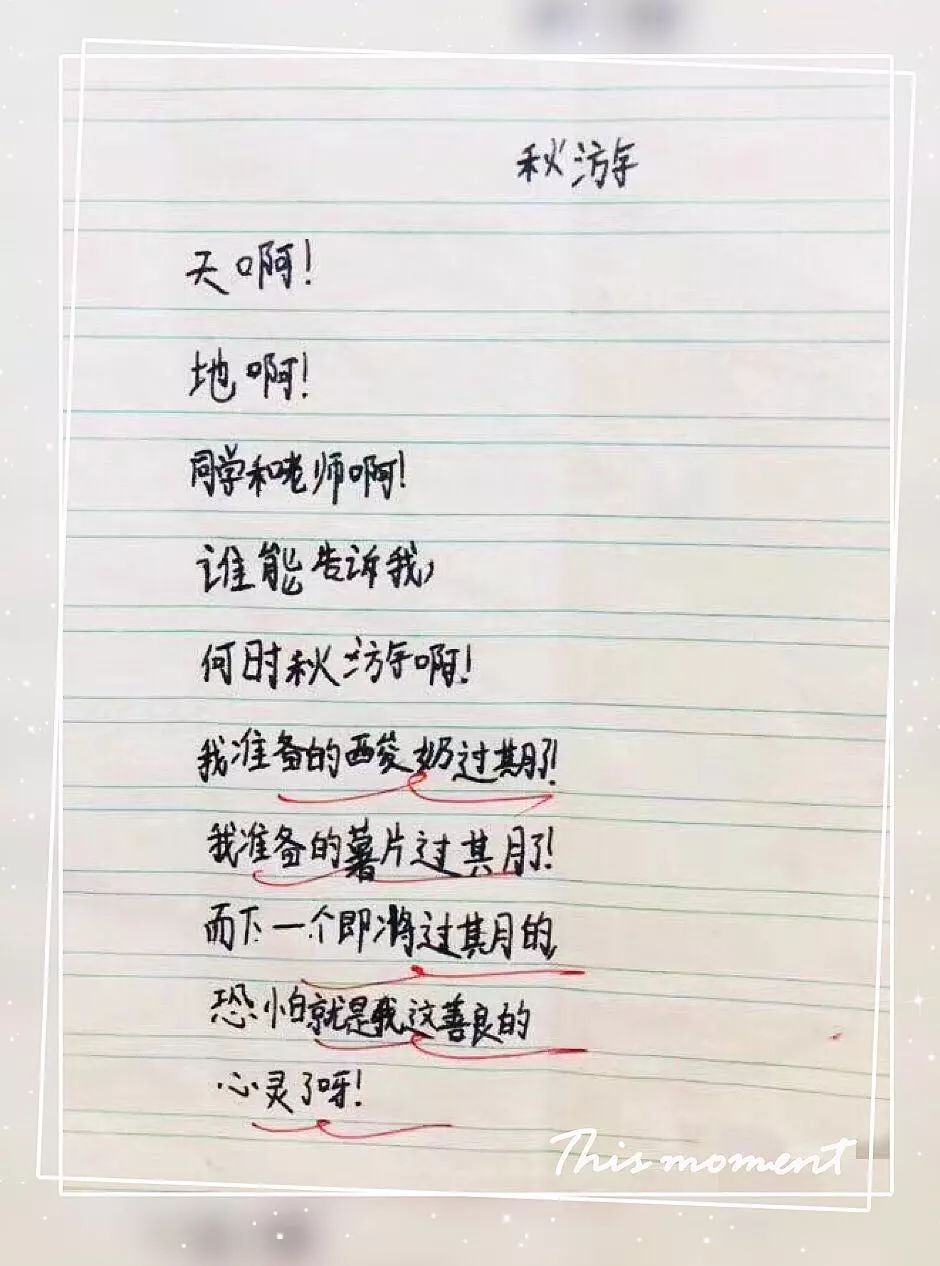 秋游
天啊!
地啊!
同学和老师啊!
谁能告诉我,
何时秋游啊!
我准备的酸奶过期了!
我准备的薯片过期了!
而下一个即将过期的
恐怕就是我这善良的
心灵了呀!
This moment